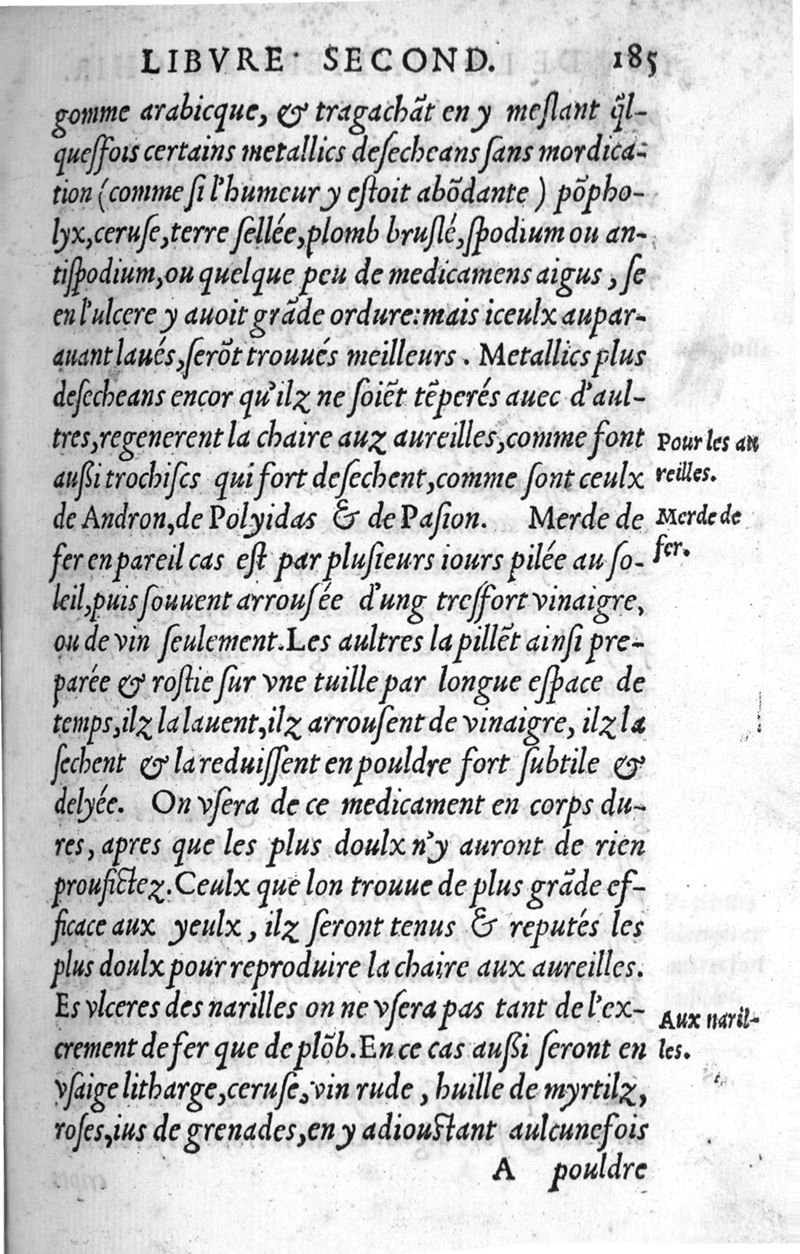 LIBVRE SECOND. 185
gomme arabicque, & tragachãt en y meſlant q̃l-
queſfois certains metallics deſecheans ſans mordica-
tion (comme ſi l'humeur y eſtoit abõdante) põpho-
lyx, ceruſe, terre ſellée, plomb bruſlé, ſpodium ou an-
tiſpodium, ou quelque peu de medicamens aigus, ſe
en l'ulcere y auoit grãde ordure: mais iceulx aupar-
auant laués, ſerõt trouués meilleurs. Metallics plus
deſecheans encor qu'ilz ne ſoiẽt tẽperés auec d'aul-
tres, regenerent la chaire auz aureilles, comme font
Pour les au
auſsi trochiſcs qui fort deſechent, comme ſont ceulx
reilles.
de Andron, de Polyidas & de Paſion. Merde de
Merde de
fer en pareil cas eſt par pluſieurs iours pilée au ſo-
fer.
leil, puis ſouuent arrouſée d'ung treſfort vinaigre,
ou de vin ſeulement. Les aultres la pillẽt ainſi pre-
parée & roſtie ſur vne tuille par longue eſpace de
temps, ilz la lauent, ilz arrouſent de vinaigre, ilz la
ſechent & la reduiſſent en pouldre fort ſubtile &
delyée. On vſera de ce medicament en corps du-
res, apres que les plus doulx n'y auront de rien
proufictez. Ceulx que lon trouue de plus grãde ef-
ficace aux yeulx, ilz ſeront tenus & reputés les
plus doulx pour reproduire la chaire aux aureilles.
Es vlceres des narilles on ne vſera pas tant de l'ex-
Aux naril-
crement de fer que de plõb. En ce cas auſsi ſeront en
les.
vſaige litharge, ceruſe, vin rude, huille de myrtilz,
roſes, ius de grenades, en y adiouſtant aulcunefois
A pouldre